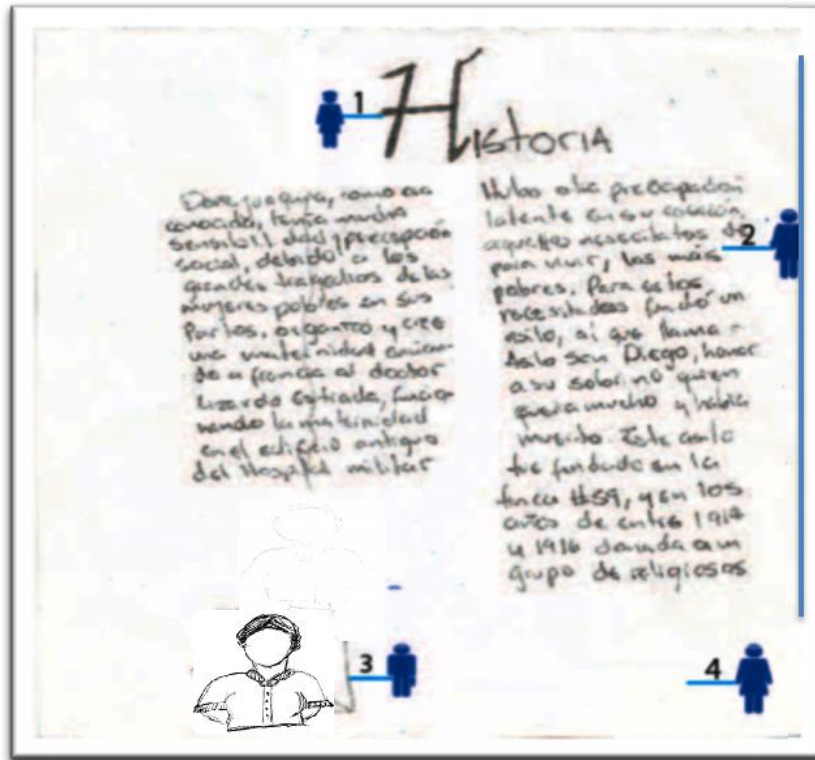 1
Historia
conocida, tenía mucho
sensibilidad y precepción
social, debido a las
grandes tragedias de las
mujeres pobres en sus
Partos. organizó y
una maternidad
de a francia al doctor
Lizardo Estrada,
nando la maternidad
en el edificio antiguo
del Hospital militar
Hubo otra preocupación
latente en su corazón,
aquellos necesitados de
2
para vivir, las más
pobres. Para estos
necesitados fundó un
asilo, al que llama-
San Diego, honor
a su quien
queria mucho y había
muerto. Este asilo
fue fundado en la
finca #59, y en los
años de entre
y 1916 donada a un
grupo de religiosos
3
4